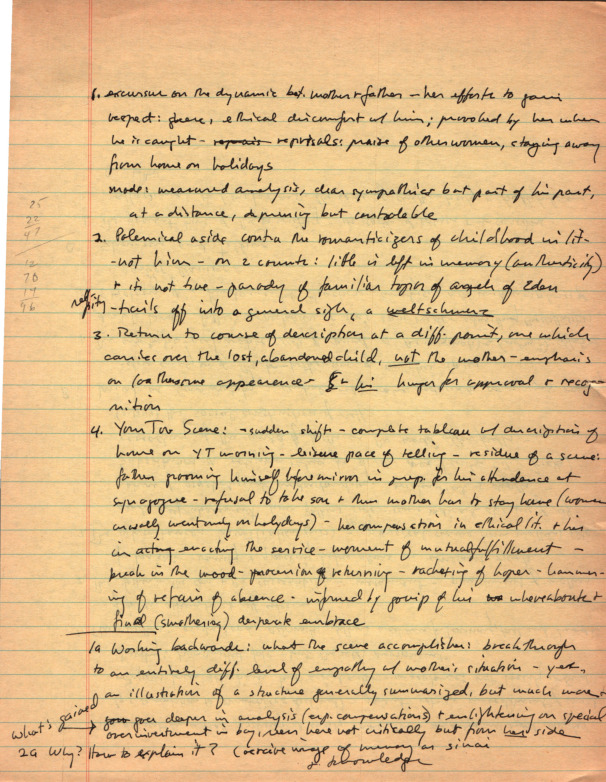 1. excursus on the dynamic bet. mother + father - her efforts to gain
respect: ethical discomfort w/ him; provoked by her when
he is caught - reprisals: praise of other women, staying away
from home on holidays
mode: measured analysis, clear sympathies but part of his past,
at a distance, depressing but controlable
2. Polemical aside contra the romanticizers of childhood in lit-
-not him - on 2 counts: little is left in memory (authenticity)
+ it's not true - parody of familiar topos of angels of Eden
self pity - trails off into a general sigh, a weltschmerz
3. Return to course of description at a diff. point, one which
carries over the lost, abandoned child, not the mother - emphasis
on loathsome appearence - + his hunger for approval + recog-
nition
4. Yom Tov Scene: - sudden shift - complete tableau w/ description of
home on YT morning - leisure pace of telling - residue of a scene:
father grooming himself before mirror in prep. for his attendance at
synagogue - refusal to take son + then mother has to stay home (women
usually went only on holydays) - her compensation in ethical lit. + his
in enacting the service - moment of mutual fulfillment -
break in the mood - procession of returning - racheting of hopes - hammer-
ing of refrain of absence - informed by gossip of his whereabouts +
final (smothering) desperate embrace
1a Working backwards: what the scene accomplishes: breakthrough
to an entirely diff. level of empathy w/ mother's situation - yes,
an illustration of a structure generally summarized, but much more -
what's gained goes deeper in analysis (esp. compensations) + enlightening on special
overinvestment in boy, seen here not critically but from her side
2a Why? How to explain it? (coercive image of memory as sinai
knowledge
25
22
47
12
70
14
96